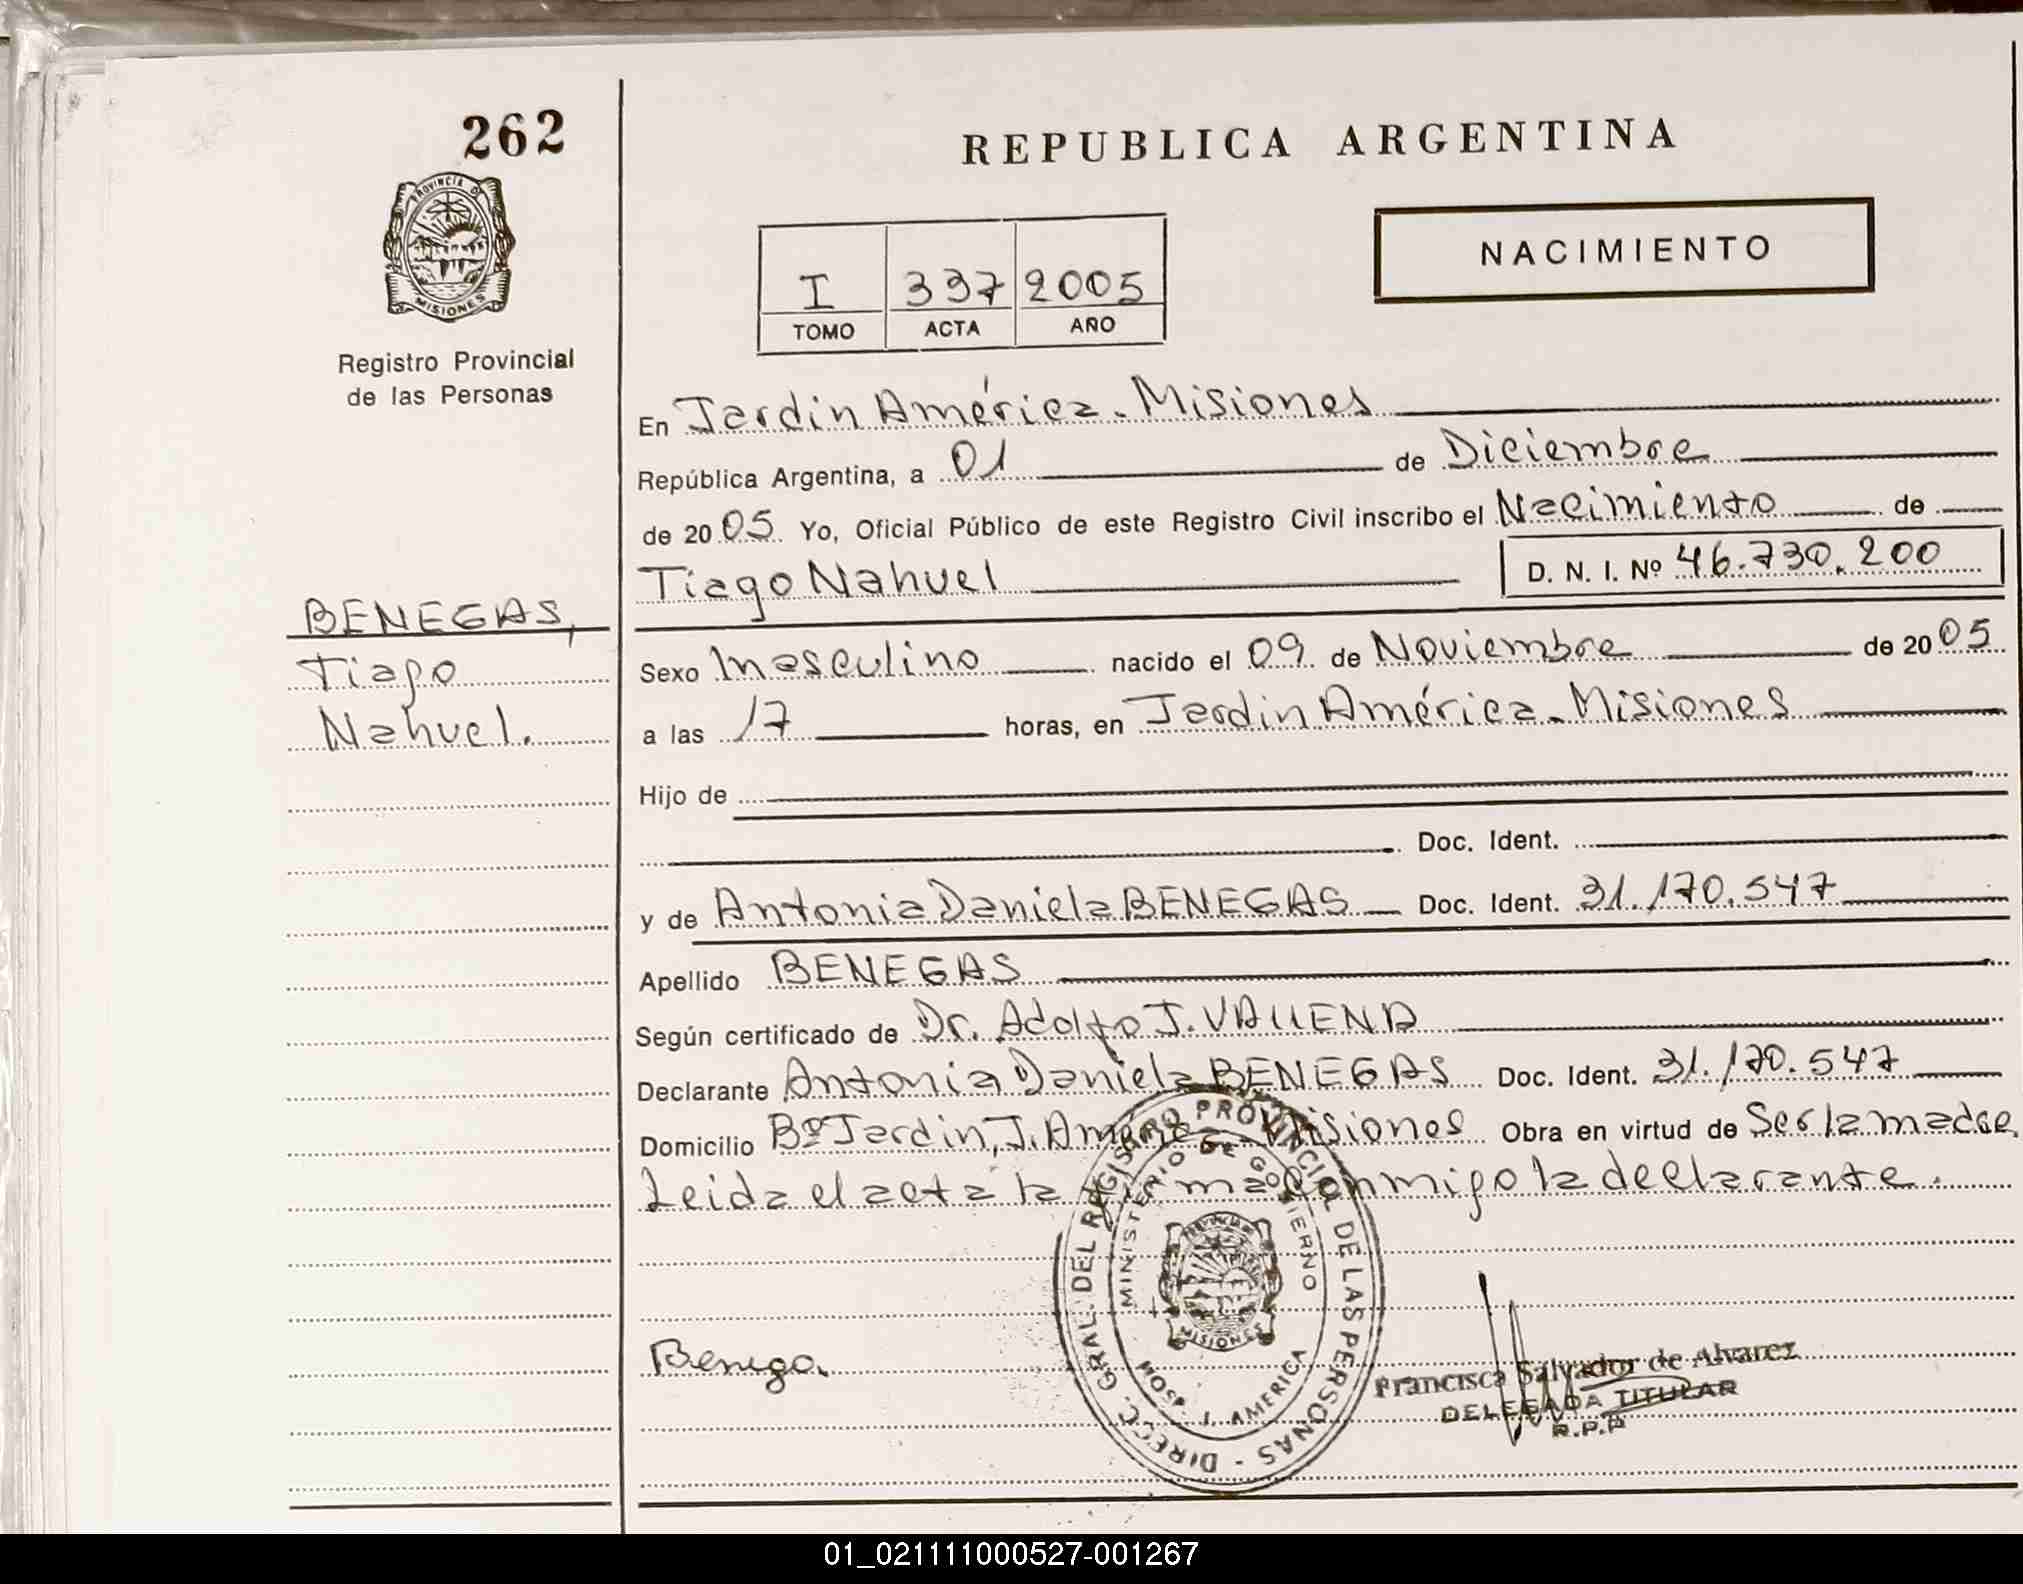 262
PROVINCIA D
MISIONES
Registro Provincial
de las Personas
BENEGAS,
Tiago
Nahuel.
REPUBLICA ARGENTINA
NACIMIENTO
I 337 2005
TOMO ACTA AÑO
En Jardin América - Misiones
República Argentina, a 01 de Diciembre
de 2005 Yo, Oficial Público de este Registro Civil inscribo el Nacimiento de
Tiago Nahuel D. N. I. Nº 46.730.200
Sexo masculino nacido el 09 de Noviembre de 2005
a las 17 horas, en Jardin América - Misiones
Hijo de
Doc. Ident.
y de Antonia Daniela BENEGAS Doc. Ident. 31.170.547
Apellido BENEGAS
Según certificado de Dr. Adolfo J.
Declarante Antonia Daniela BENEGAS Doc. Ident. 31.170.547
Domicilio Bº Jardin, J. América - Misiones Obra en virtud de Ser la madre.
Leida el acta la firma conmigo la declarante.
DIRECC. GRAL. DEL REGISTRO PROVINCIAL DE LAS PERSONAS -
MINISTERIO DE GOBIERNO
MISIONES
J. AMERICA
Francisca Salvador de Alvarez
DELEGADA TITULAR
R.P.P
01_021111000527-001267